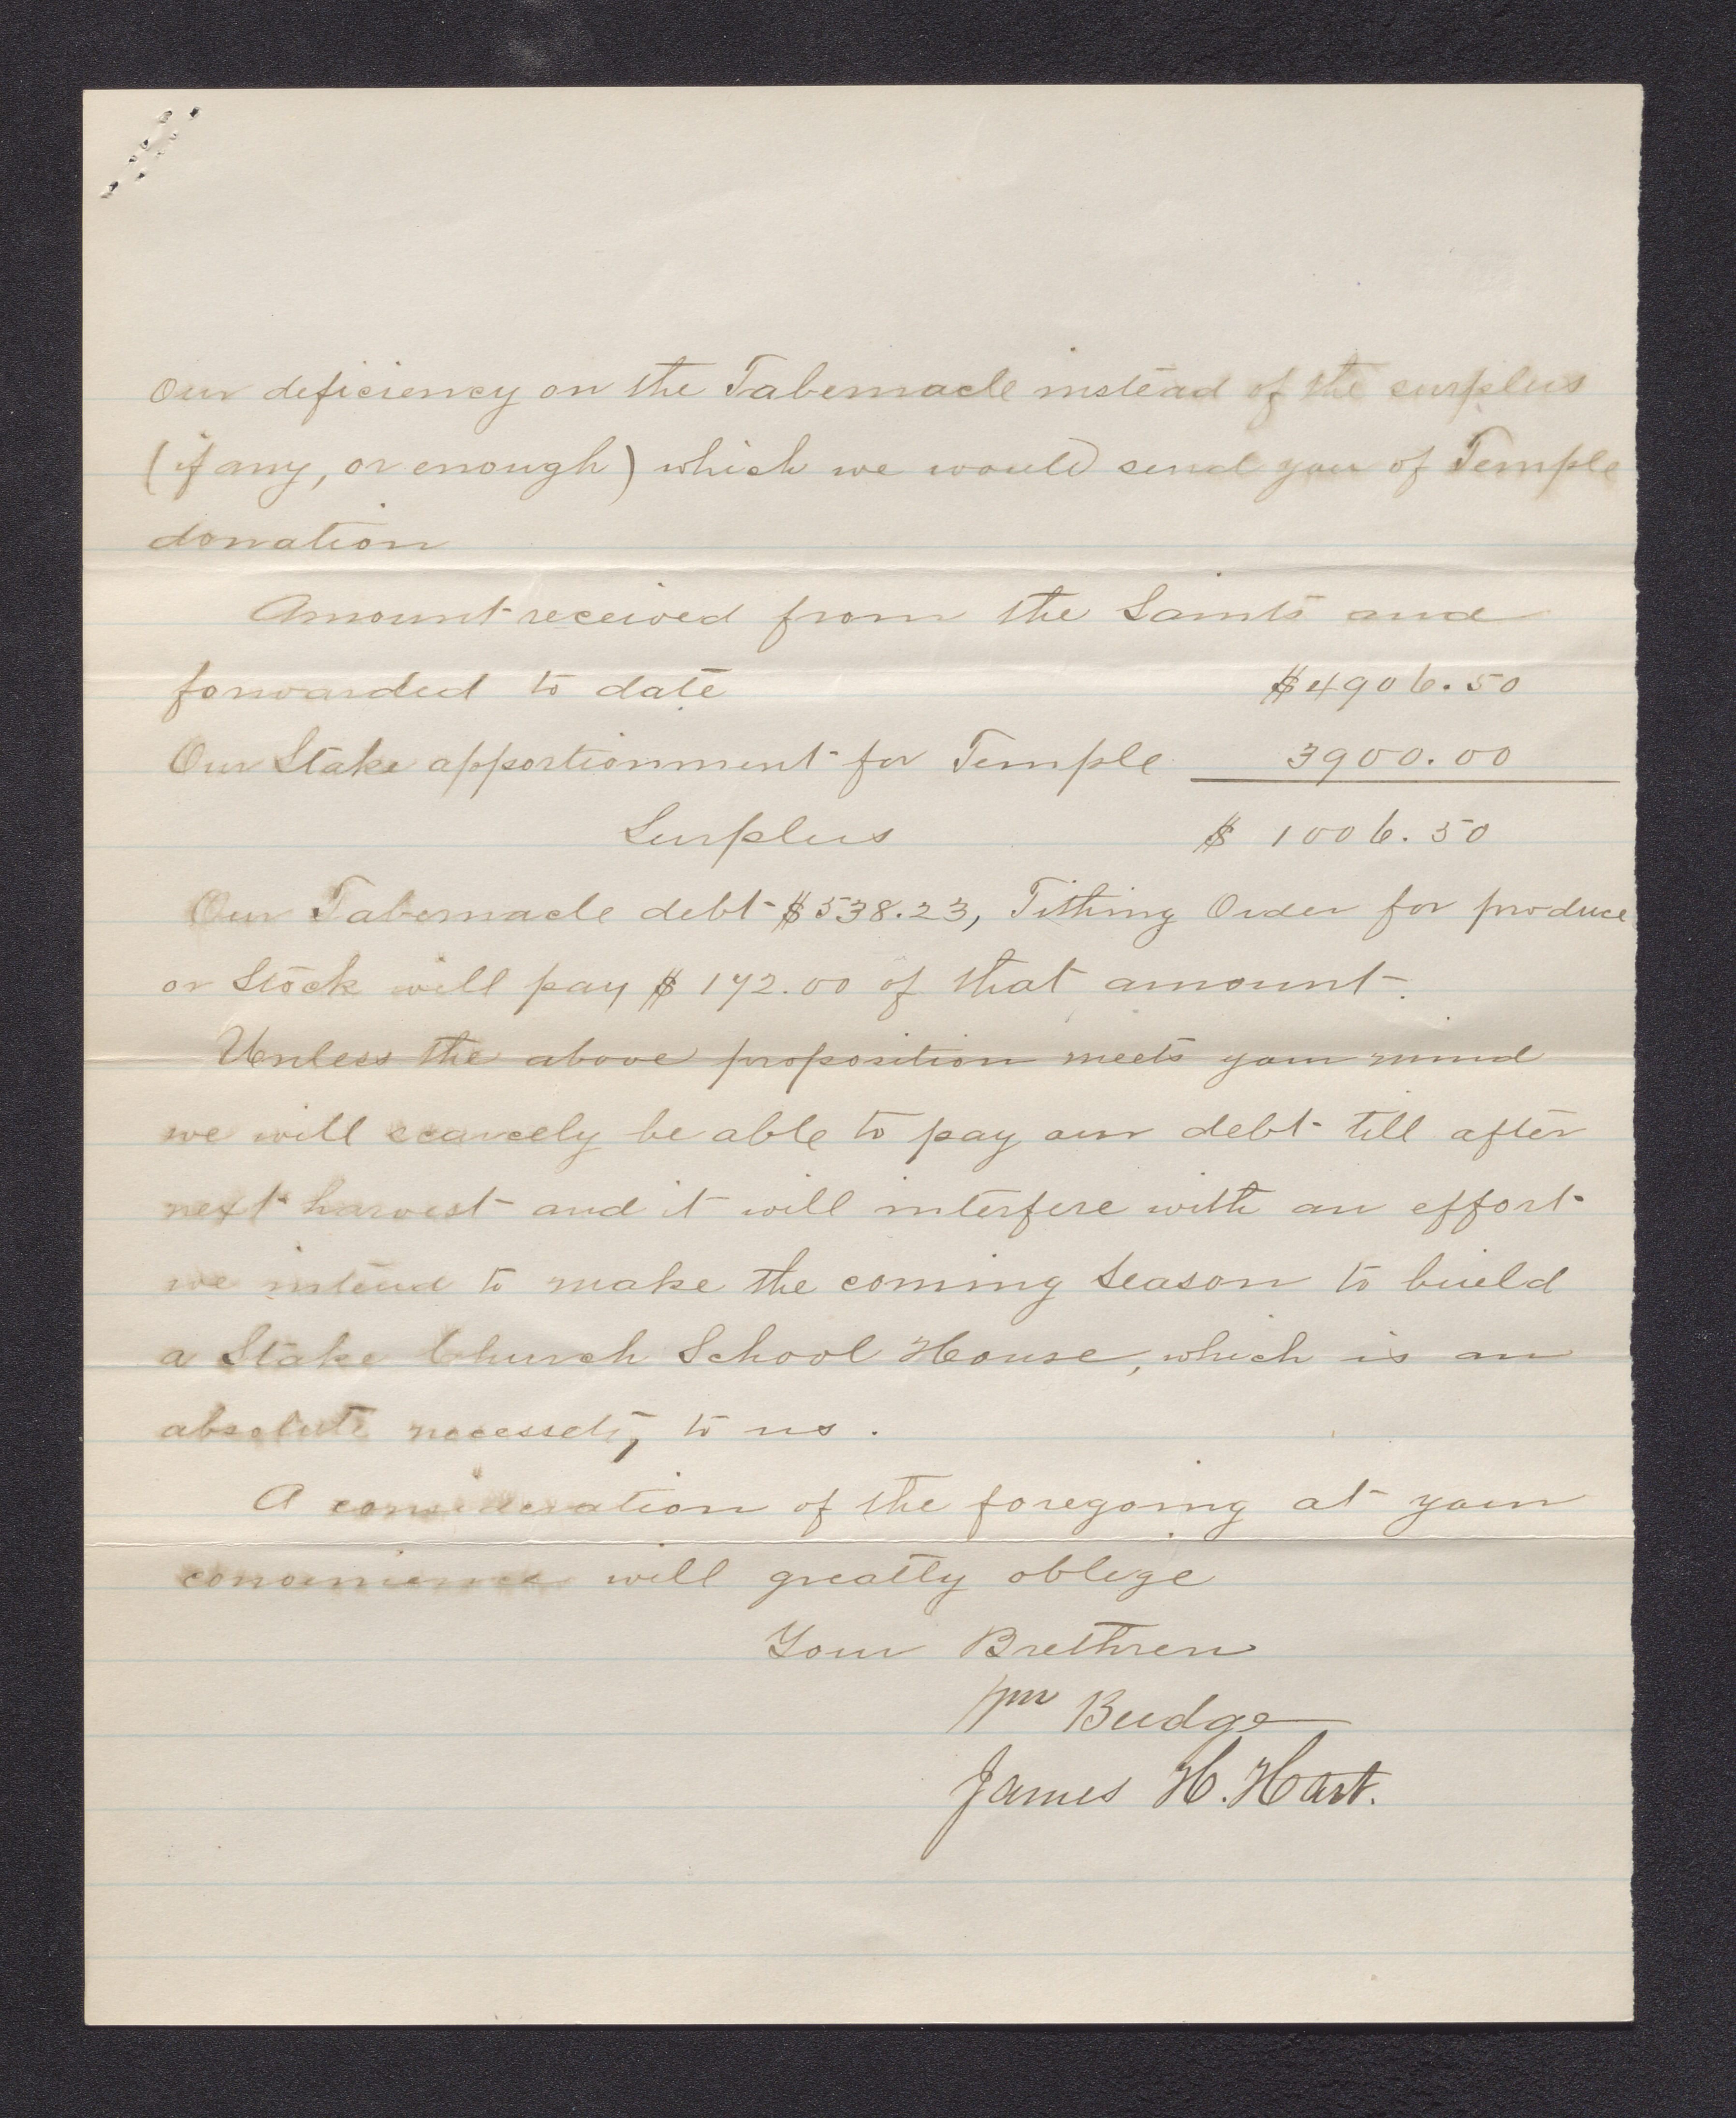 Our deficiency on the Tabernacle instead of the surplus
(if any, or enough) which we would send you of Temple
donation
Amount received from the Saints and
forwarded to date $4906.50
Our Stake apportionment for Temple 3900.00
Surplus $ 1006.50
Our Tabernacle debt $538.23, Tithing Order for produce
or Stock will pay $ 172.00 of that amount.
Unless the above proposition meets your mind
we will scarcely be able to pay our debt till after
next harvest and it will interfere with an effort
we intend to make the coming season to build
a Stake Church School House, which is an
absolute necessety to us.
A consideration of the foregoing at your
convenience will greatly oblige
Your Brethren
Wm Budge
James H. Hart.